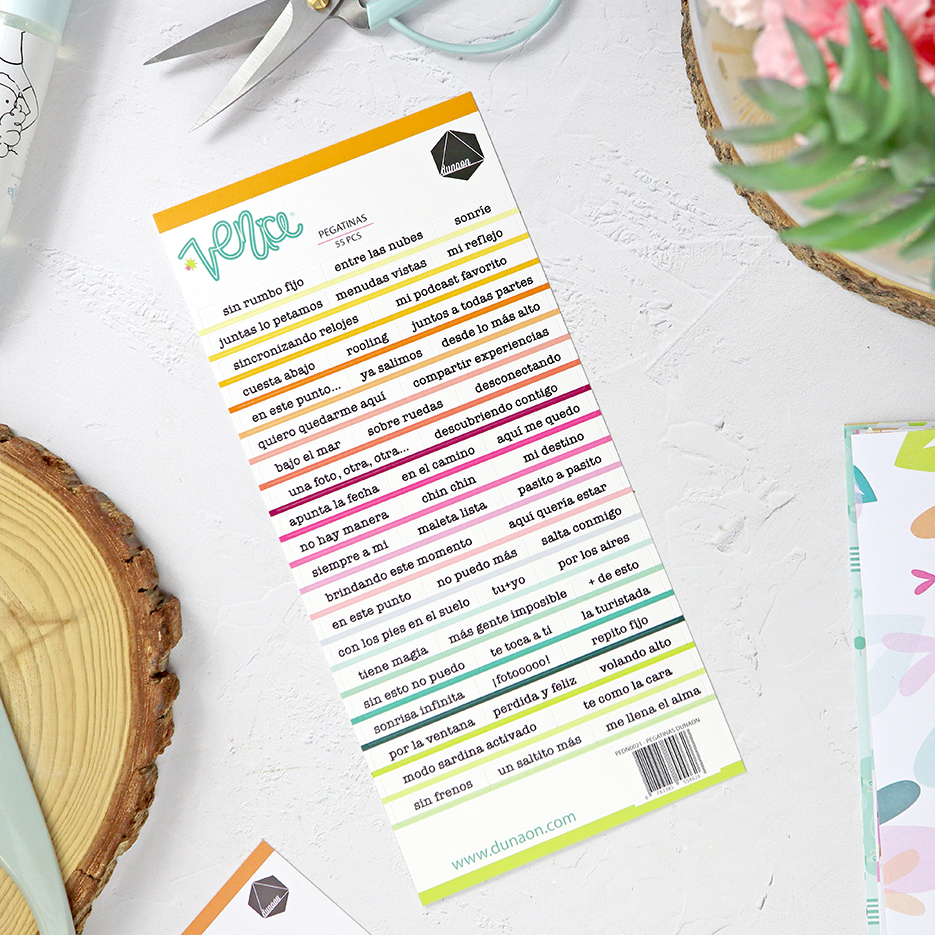 dunaon
venice
PEGATINAS
55 PCS
sin rumbo fijo entre las nubes sonríe
juntas lo petamos menudas vistas mi reflejo
sincronizando relojes mi podcast favorito
cuesta abajo rooling juntos a todas partes
en este punto... ya salimos desde lo más alto
quiero quedarme aquí compartir experiencias
bajo el mar sobre ruedas desconectando
una foto, otra, otra... descubriendo contigo
apunta la fecha en el camino aquí me quedo
no hay manera chin chin mi destino
siempre a mi maleta lista pasito a pasito
brindando este momento aquí quería estar
en este punto no puedo más salta conmigo
con los pies en el suelo tu+yo por los aires
tiene magia más gente imposible + de esto
sin esto no puedo te toca a ti la turistada
sonrisa infinita ¡fotooooo! repito fijo
por la ventana perdida y feliz volando alto
modo sardina activado te como la cara
sin frenos un saltito más me llena el alma
PEDN0021 - PEGATINAS DUNAON
www.dunaon.com
dunaon